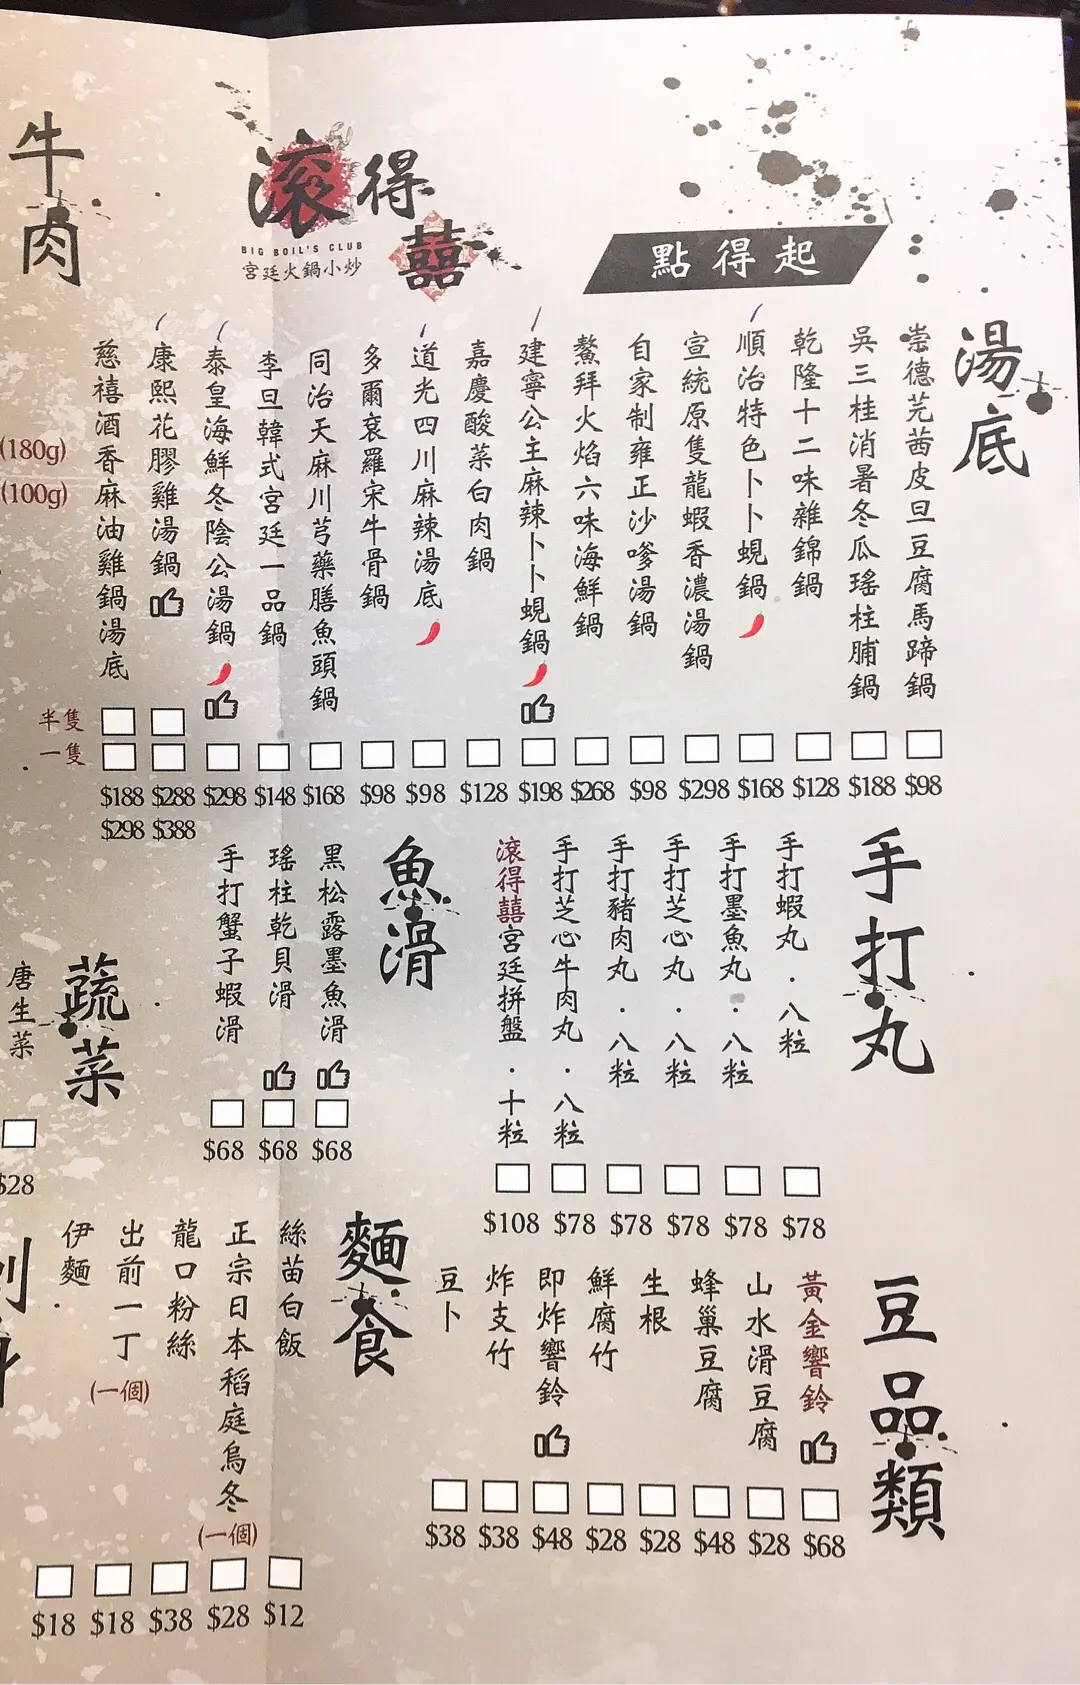 滾得囍
BIG BOIL'S CLUB
宮廷火鍋小炒
點得起
湯底
崇德芫茜皮旦豆腐馬蹄鍋 $98
吳三桂消暑冬瓜瑤柱脯鍋 $188
乾隆十二味雜錦鍋 $128
順治特色卜卜蜆鍋 $168
宣統原隻龍蝦香濃湯鍋 $298
自家制雍正沙嗲湯鍋 $98
鰲拜火焰六味海鮮鍋 $268
建寧公主麻辣卜卜蜆鍋 $198
嘉慶酸菜白肉鍋 $128
道光四川麻辣湯底 $98
多爾袞羅宋牛骨鍋 $98
同治天麻川芎藥膳魚頭鍋 $168
李旦韓式宮廷一品鍋 $148
泰皇海鮮冬陰公湯鍋 $298
康熙花膠雞湯鍋 $288 $388
慈禧酒香麻油雞鍋湯底 $188 $298
半隻
一隻
手打丸
手打蝦丸．八粒 $78
手打墨魚丸．八粒 $78
手打芝心丸．八粒 $78
手打豬肉丸．八粒 $78
手打芝心牛肉丸．八粒 $78
滾得囍宮廷拼盤．十粒 $108
魚滑
黑松露墨魚滑 $68
瑤柱乾貝滑 $68
手打蟹子蝦滑 $68
豆品類
黃金響鈴 $68
山水滑豆腐 $28
蜂巢豆腐 $48
生根 $28
鮮腐竹 $28
即炸響鈴 $48
炸支竹 $38
豆卜 $38
麵食
絲苗白飯 $12
正宗日本稻庭烏冬 (一個) $28
龍口粉絲 $38
出前一丁 (一個) $18
伊麵 $18
牛肉
(180g)
(100g)
蔬菜
唐生菜 $28